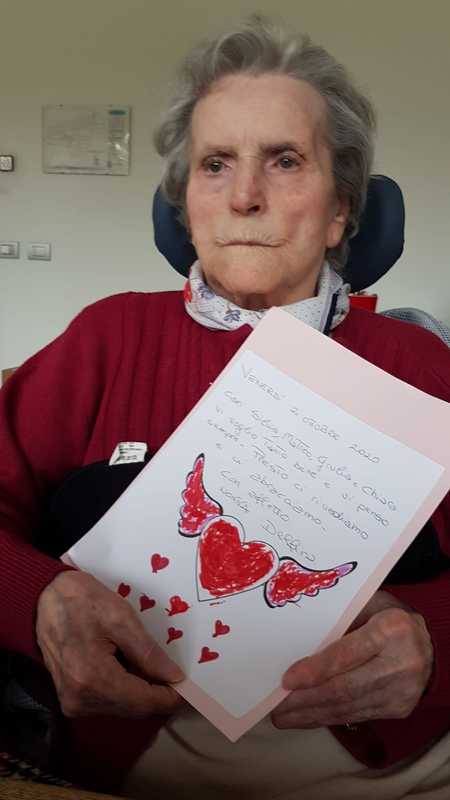 VENERDÌ 2 OTTOBRE 2020
Cari Fabio, Matteo, Giulia e Chiara
vi voglio tanto bene e vi penso
sempre. Presto ci rivedremo
e ci abbracciamo.
Con affetto
nonna Delfina